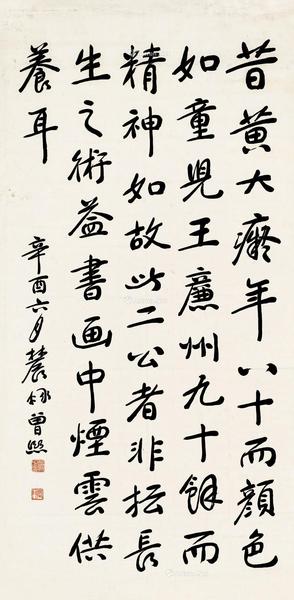 昔黄大癡年八十而顏色
如童兒王廉州九十餘而
精神如故此二公者非抎長
生之術益書画中煙雲供
養耳
辛酉六月農髯曾熙